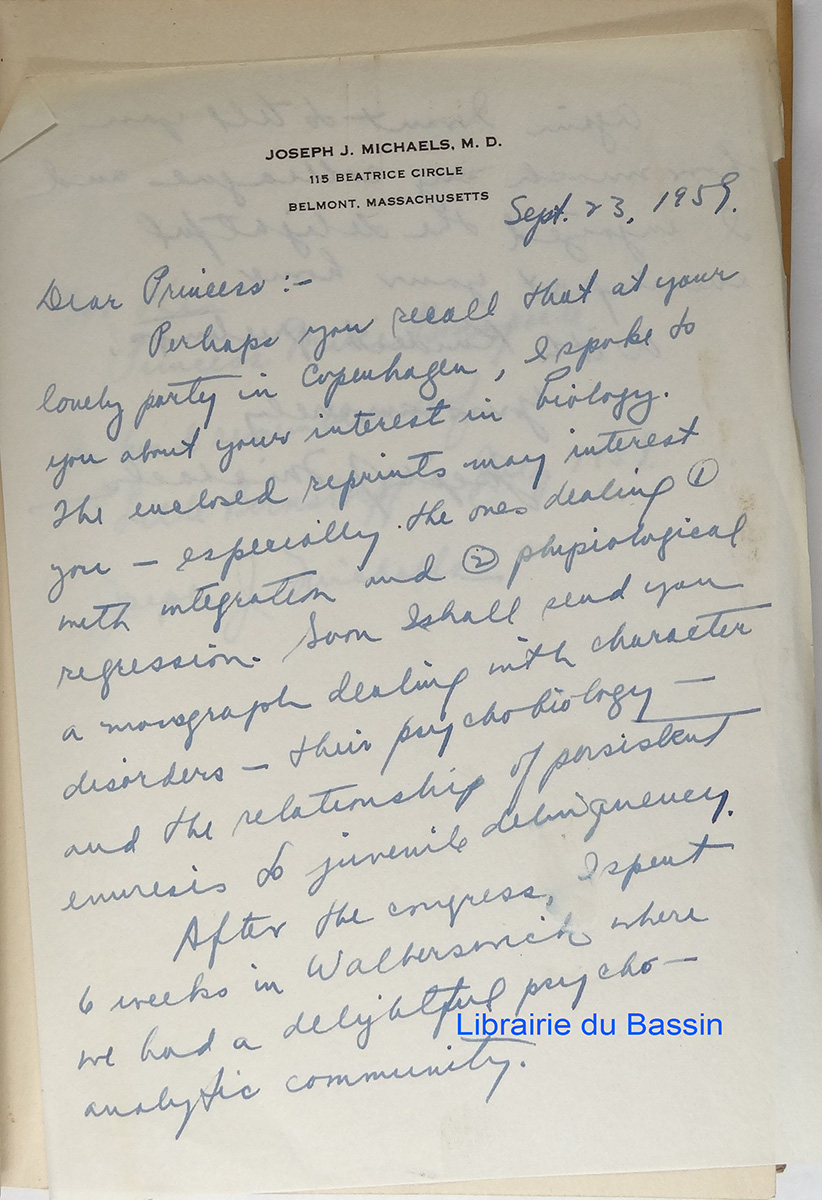 JOSEPH J. MICHAELS, M. D.
115 BEATRICE CIRCLE
BELMONT, MASSACHUSETTS
Sept. 23, 1959.
Dear Princess :-
Perhaps you recall that at your
lovely party in Copenhagen, I spoke to
you about your interest in biology.
The enclosed reprints may interest
you - especially the ones dealing ①
with integration and ② physiological
regression. Soon I shall send you
a monograph dealing with character
disorders - their psychobiology -
and the relationship of persistent
enuresis to juvenile delinquency.
After the congress, I spent
6 weeks in Walberswick where
we had a delightful psycho-
analytic community.
Librairie du Bassin